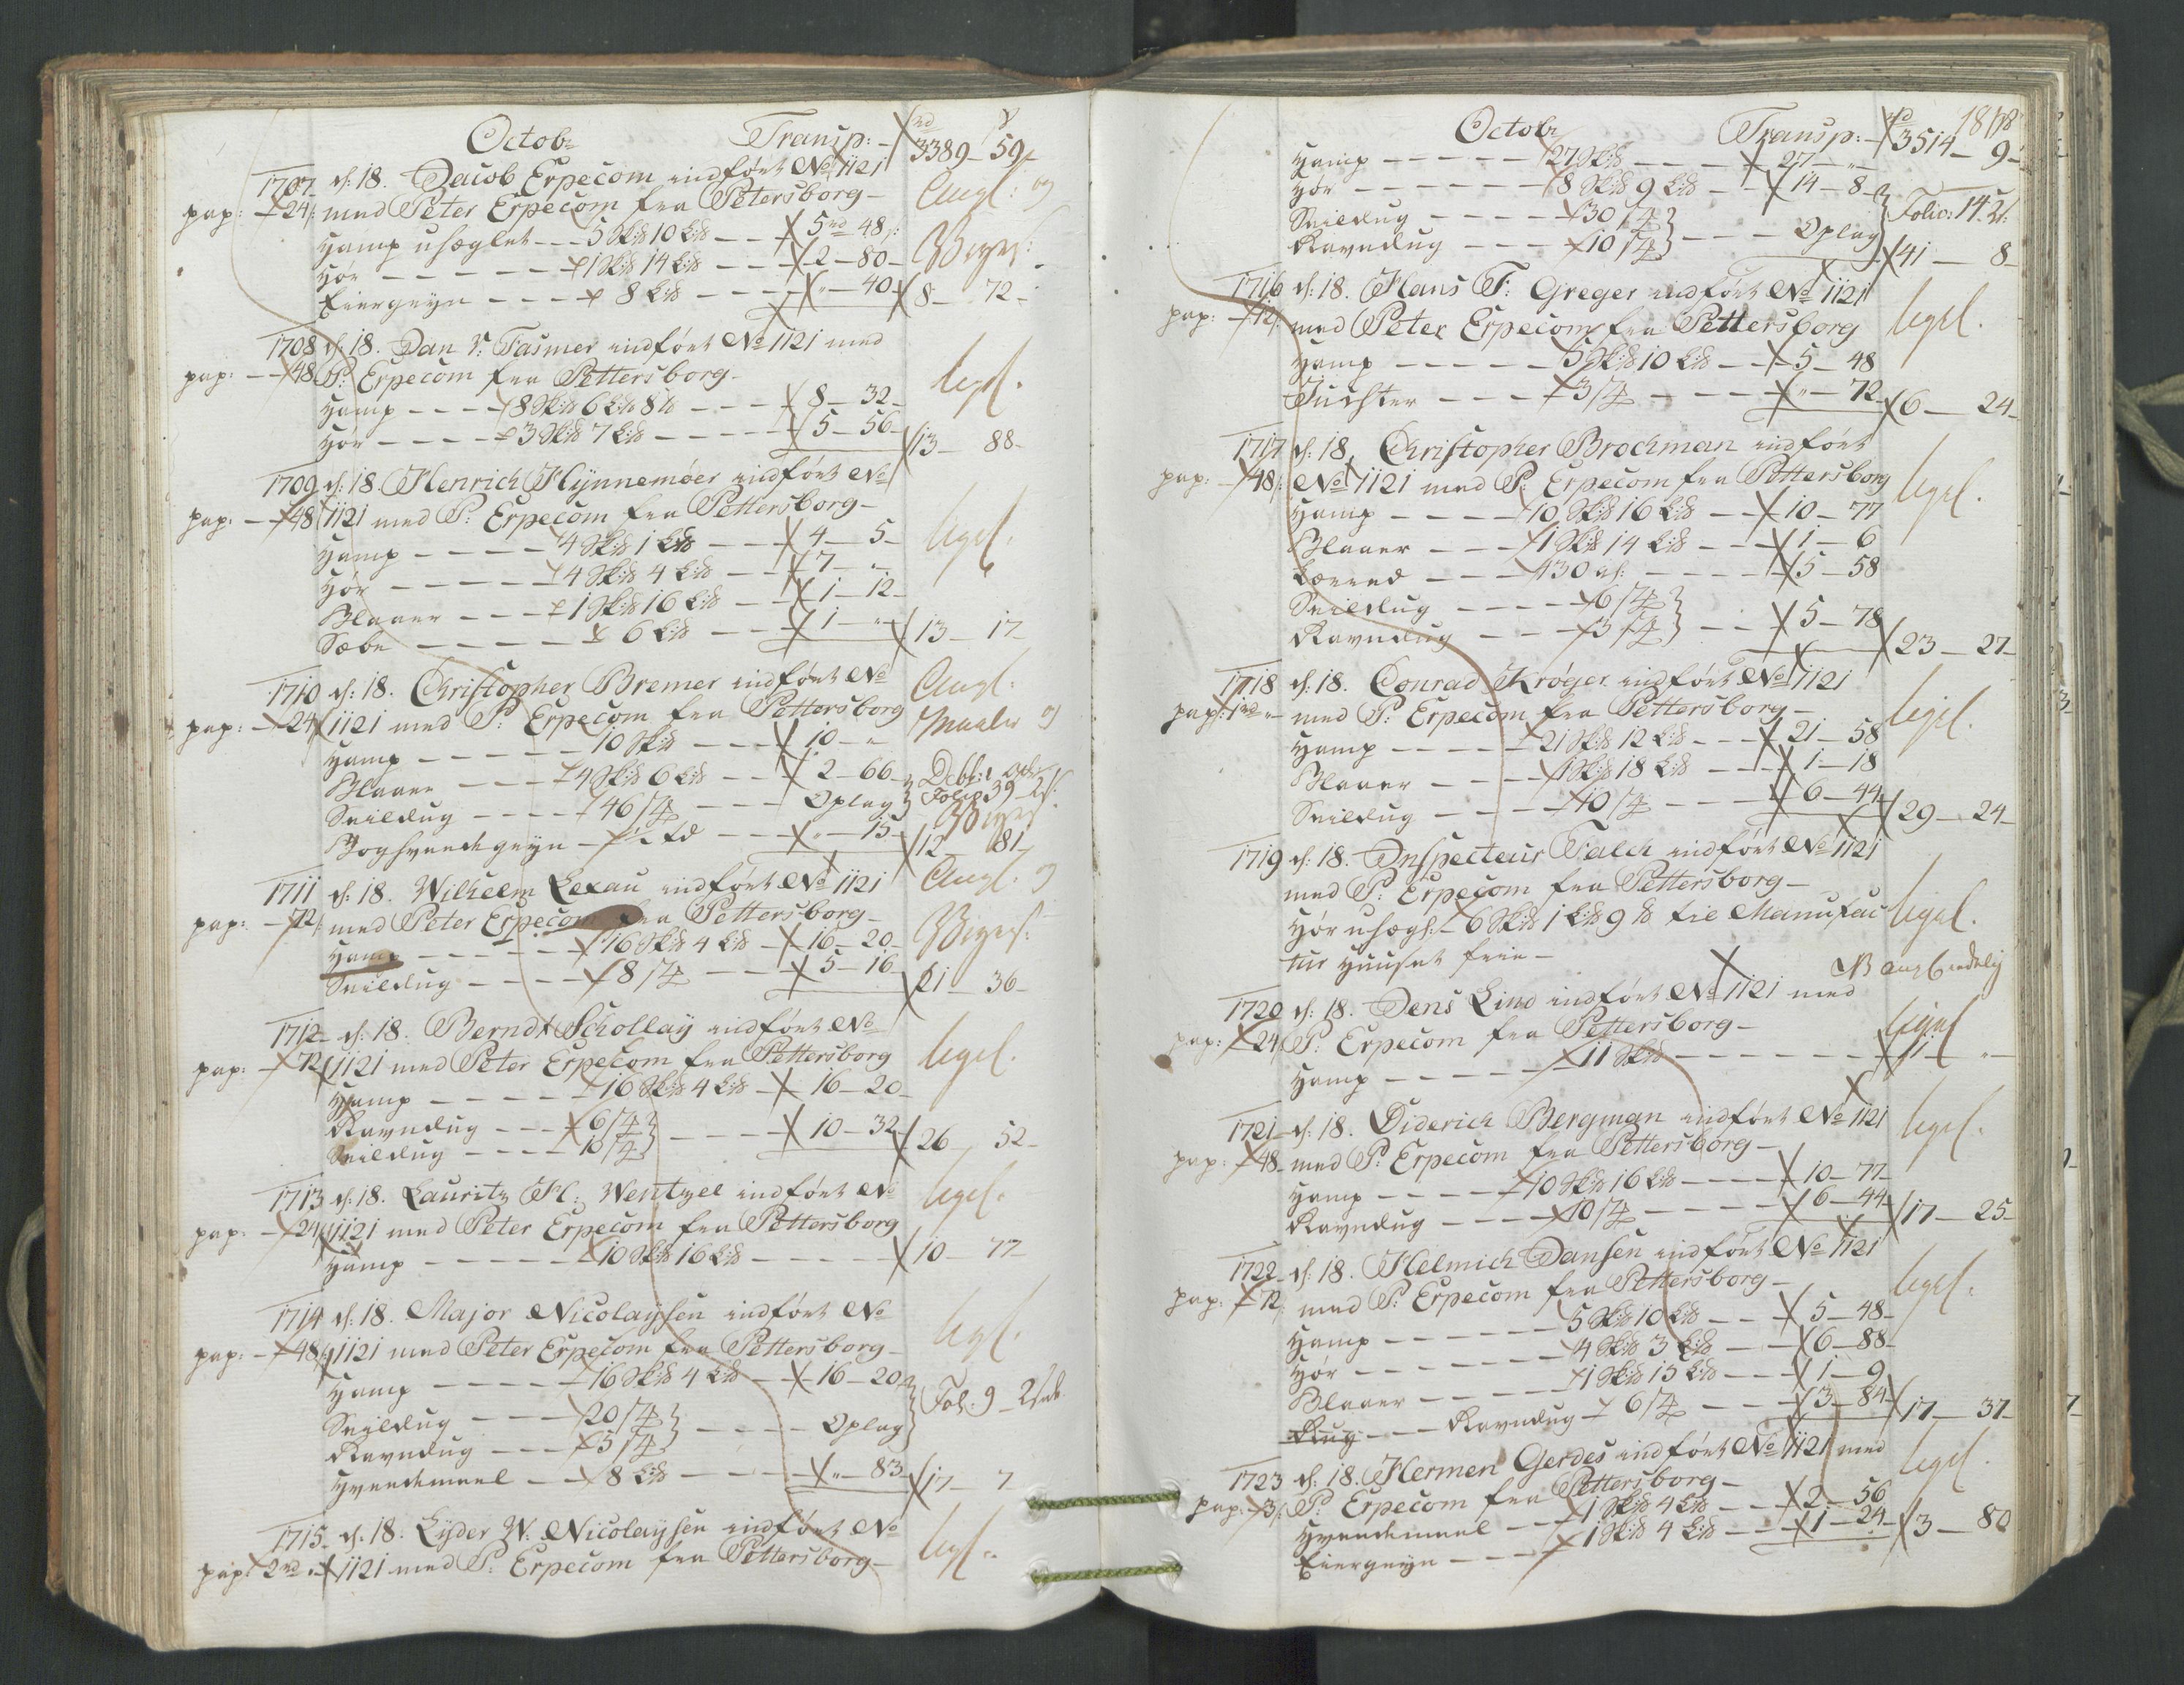 Octobr Transp: rd 3389 - 59 -
1707 d: 18. Jacob Erpecom indført No 1121
pap: - 24 med Peter Erpecom fra Petersborg -
Hamp uheglet --- 5 Sk:℔ 10 L:℔ -- 5 rd 48 s:
Hør ----- 1 Sk:℔ 14 L:℔ --- 2 - 80 -
Eiergryn --- 8 L:℔ ---- " - 40 8 - 72 -
1708 d: 18. Dan V: Fasmer indført No 1121 med
pap: - 48 P: Erpecom fra Pettersborg -
Hamp ---- 8 Sk:℔ 6 L:℔ 8 ℔ --- 8 - 32 -
Hør ---- 3 Sk:℔ 7 L:℔ ---- 5 - 56 - 13 - 88 -
1709 d: 18. Henrich Hynnemöer indført No
pap: - 48 1121 med P: Erpecom fra Pettersborg -
Hamp ---- 4 Sk:℔ 1 L:℔ --- 4 - 5 -
Hør ---- 4 Sk:℔ 4 L:℔ --- 7 - "
Blaaer --- 1 Sk:℔ 16 L:℔ -- 1 - 12 -
Sæbe ---- 6 L:℔ --- 1 - " 13 - 17 -
1710 d: 18. Christopher Bremer indført No
pap: - 24 1121 med P: Erpecom fra Pettersborg
Hamp ----- 10 Sk:℔ --- 10 - "
Blaaer --- 4 Sk:℔ 6 L:℔ -- 2 - 66 -
Seildug ---- 46 / 4 --- Oplag Folio 39 -
Boghvedegryn - ½ Td --- " - 15 - 12 81 -
1711 d: 18. Wilhelm Lexau indført No 1121
pap: - 72 med Peter Erpecom fra Pettersborg -
Hamp ----- 16 Sk:℔ 4 L:℔ - 16 - 20 -
Seildug ---- 8 / 4 --- 5 - 16 - 21 - 36 -
1712 d: 18. Berndt Schollay indført No
pap: - 72 1121 med Peter Erpecom fra Pettersborg
Hamp ----- 16 Sk:℔ 4 L:℔ - 16 - 20 -
Ravndug --- 6 / 4
Seildug ---- 10 / 4 ---- 10 - 32 - 26 - 52 -
1713 d: 18. Lauritz H: Wentzel indført No
pap: - 24 1121 med Peter Erpecom fra Pettersborg
Hamp ----- 10 Sk:℔ 16 L:℔ ----- 10 - 77
1714 d: 18. Major Nicolaysen indført No
pap: - 48 1121 med Peter Erpecom fra Pettersborg -
Hamp ----- 16 Sk:℔ 4 L:℔ -- 16 - 20
Seildug --- 20 / 4 Fol: 9 -
Ravndug --- 5 / 4 ---- Oplag
Hvedemeel -- 8 L:℔ ---- " - 83 - 17 - 7 -
1715 d: 18. Lyder W. Nicolaysen indført No
pap: 2 rd " 1121 med P: Erpecom fra Pettersborg -
Octobr Transp: - rd 3514 - 9 -
Hamp ----- 27 Sk:℔ ---- 27 - "
Hør ----- 8 Sk:℔ 9 L:℔ -- 14 - 8
Seildug ---- 30 / 4 Folio: 14.
Ravndug --- 10 / 4 ---- Oplag 41 - 8 -
1716 d: 18. Hans F: Greger indført No 1121
pap: - 12 med Peter Erpecom fra Pettersborg
Hamp ----- 5 Sk:℔ 10 L:℔ -- 5 - 48
Juchter --- 3 / 4 ---- " - 72 6 - 24 -
1717 d: 18. Christopher Brochman indført
pap: - 48 No 1121 med P: Erpecom fra Pettersborg
Hamp ---- 10 Sk:℔ 16 L:℔ -- 10 - 77
Blaaer --- 1 Sk:℔ 14 L:℔ -- 1 - 6
Lærred --- 430 al: ---- 5 - 58
Seildug ---- 6 / 4
Ravndug --- 3 / 4 -- 5 - 78 23 - 27 -
1718 d: 18. Conrad Kröger indført No 1121
pap: 1 rd " med P: Erpecom fra Pettersborg -
Hamp ---- 21 Sk:℔ 12 L:℔ --- 21 - 58
Blaaer --- 1 Sk:℔ 18 L:℔ --- 1 - 18
Seildug ---- 10 / 4 ---- 6 - 44 - 29 - 24 -
1719 d: 18. Inspecteur Falch indført No 1121
med P: Erpecom fra Pettersborg -
Hør uhegl: - 6 Sk:℔ 1 L:℔ 9 ℔ til Manufac
tur Huuset frie -
1720 d: 18. Jens Lind indført No 1121 med
pap: - 24 P: Erpecom fra Pettersborg -
Hamp ----- 11 Sk:℔ ------ 11 - " -
1721 d: 18. Diderich Bergman indført No 1121
pap: - 48 med P: Erpecom fra Pettersborg -
Hamp ---- 10 Sk:℔ 16 L:℔ ---- 10 - 77 -
Ravndug ---- 10 / 4 ---- 6 - 44 - 17 - 25 -
1722 d: 18. Helmich Jansen indført No 1121
pap: - 72 med P: Erpecom fra Pettersborg -
Hamp ----- 5 Sk:℔ 10 L:℔ --- 5 - 48 -
Hør ----- 4 Sk:℔ 3 L:℔ -- 6 - 88 -
Blaaer ---- 1 Sk:℔ 15 L:℔ --- 1 - 9
Rug --- Ravndug - 6 / 4 --- 3 - 84 17 - 37 -
1723 d: 18. Hermen Gerdes indført No 1121 med
pap: - 3 P: Erpecom fra Pettersborg -
Hvedemeel -- 1 Sk:℔ 4 L:℔ -- 2 - 56
Eiergryn ---- 1 Sk:℔ 4 L:℔ -- 1 - 24 - 3 - 80